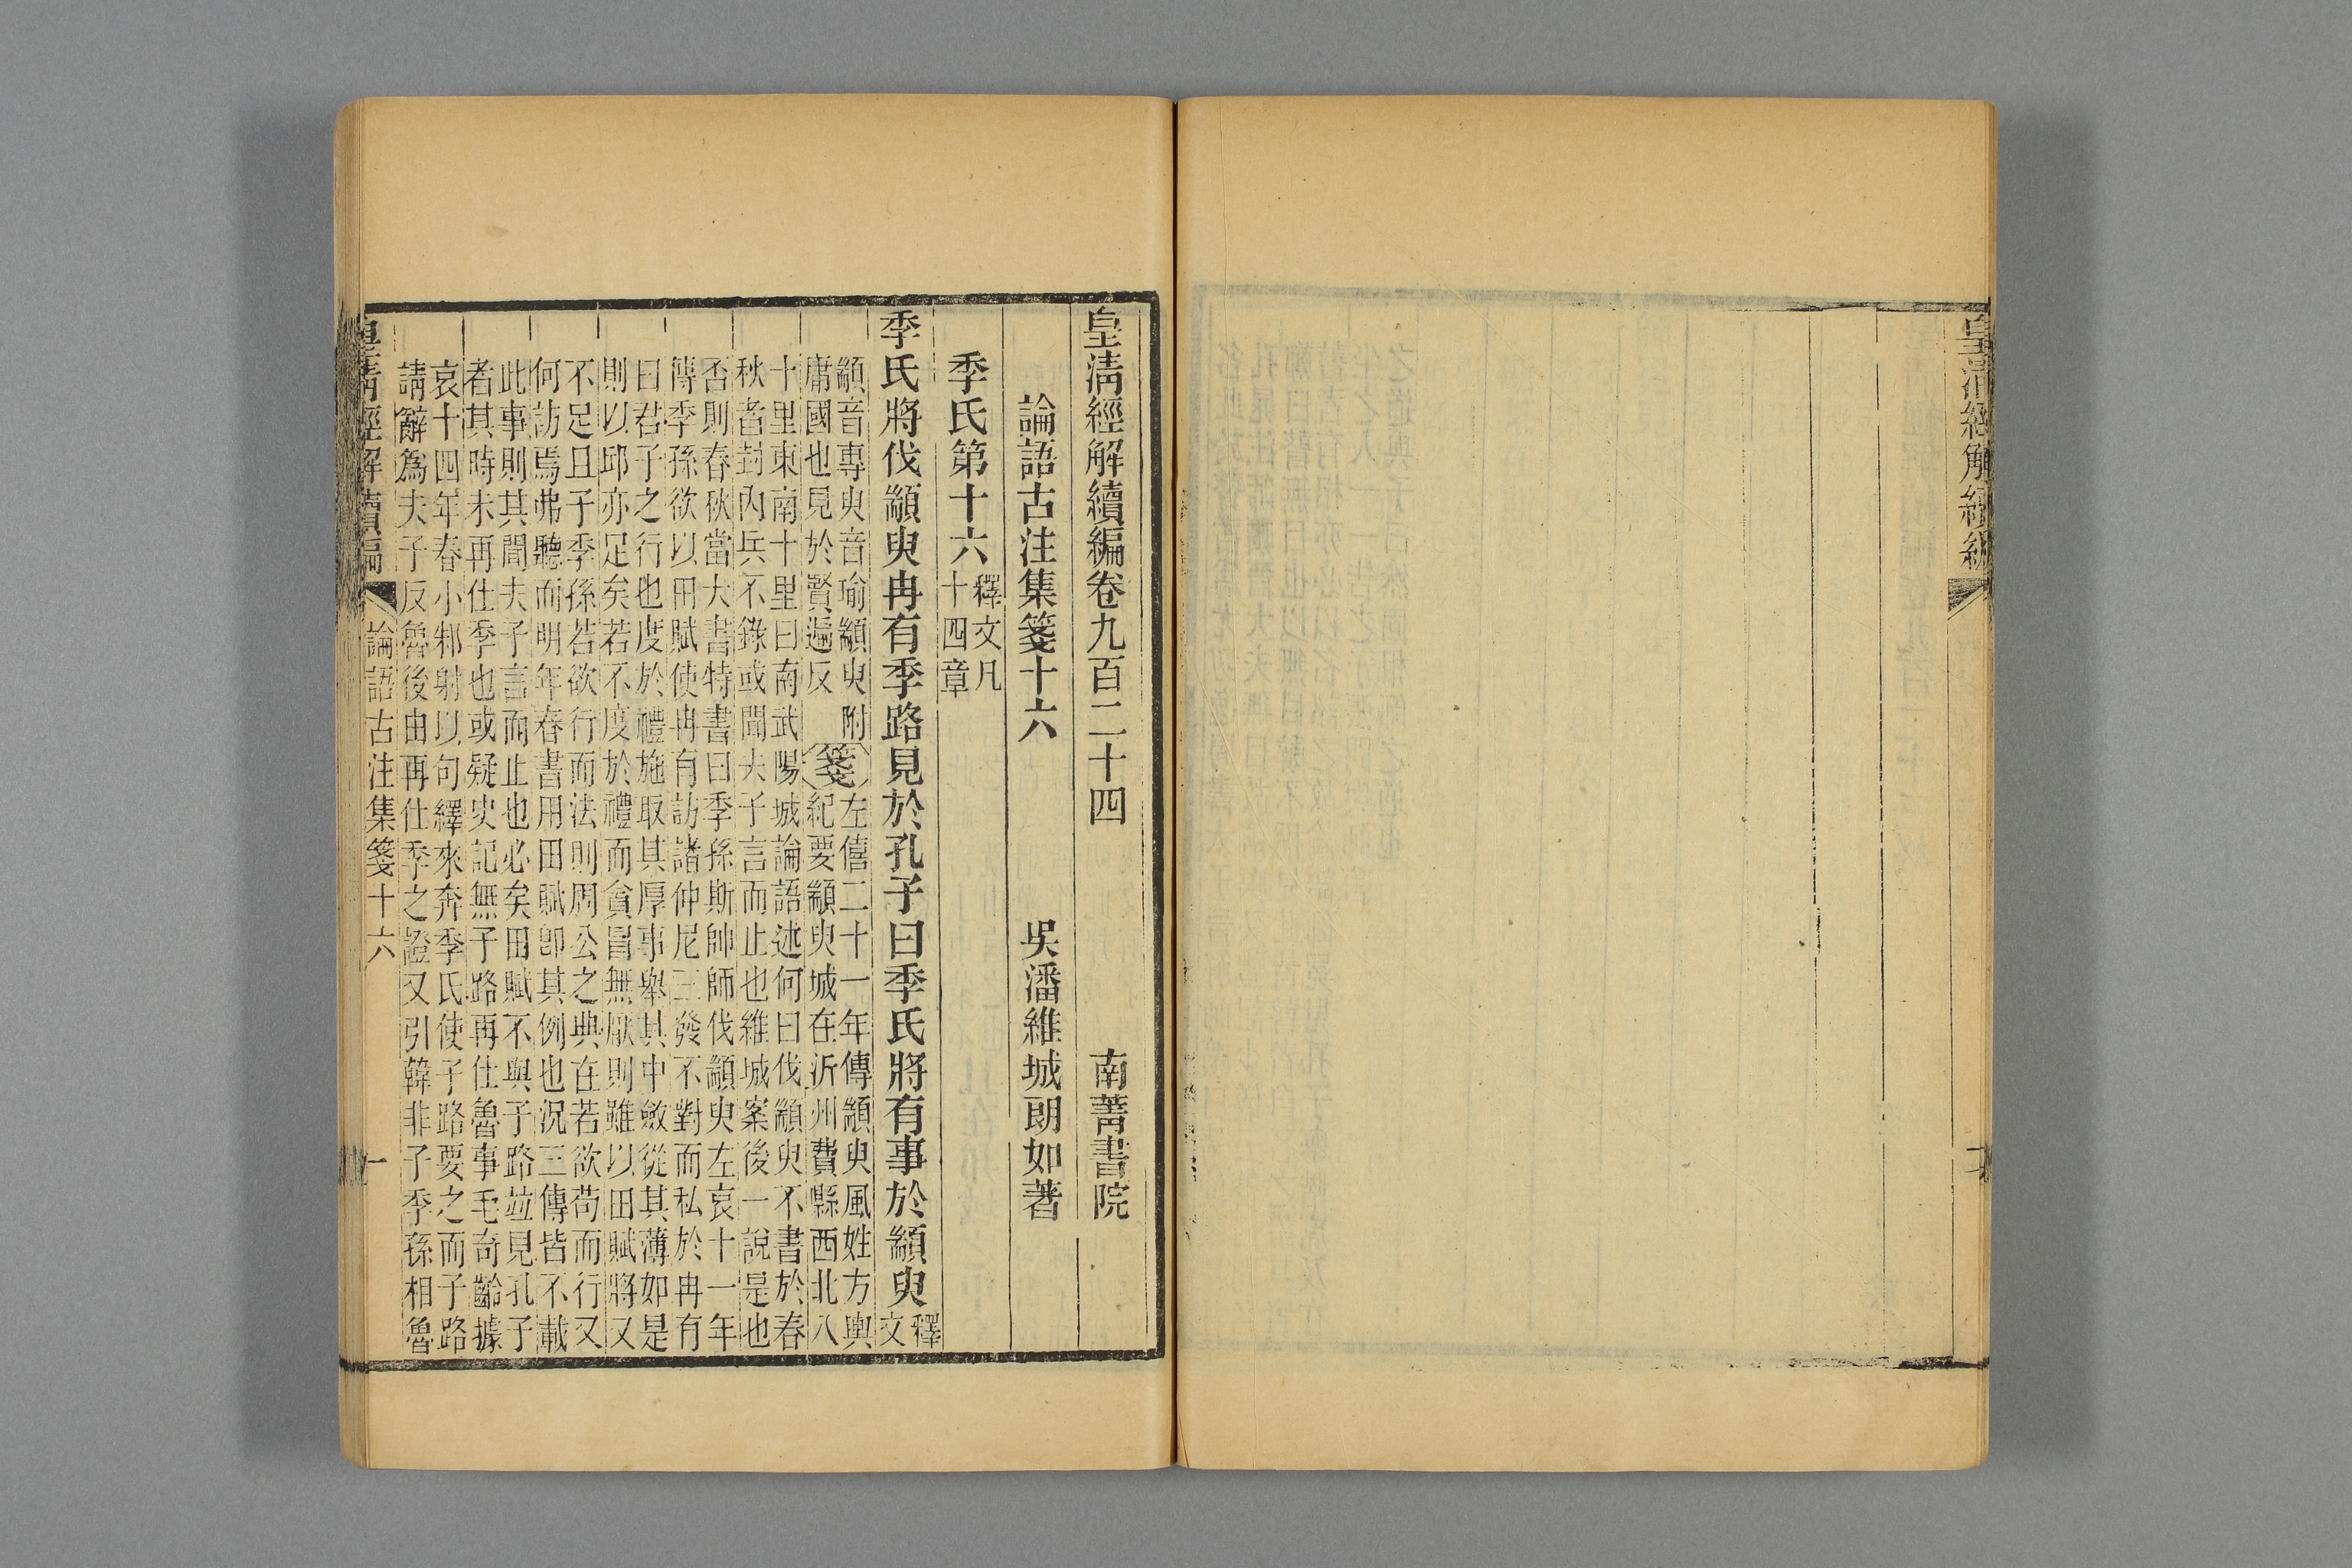 皇清經解續編
皇清經解續編卷九百二十四　南菁書院
論語古注集箋十六　吳潘維城朗如著
季氏第十六
釋文凡
十四章
季氏將伐顓臾冉有季路見於孔子曰季氏將有事於顓臾
釋
文
顓音專臾音瑜顓臾附
庸國也見於賢遍反
箋
左僖二十一年傳顓臾風姓方輿
紀要顓臾城在沂州費縣西北八
十里東南十里曰南武陽城論語述何曰伐顓臾不書於春
秋者封內兵不錄或聞夫子言而止也維城案後一說是也
否則春秋當大書特書曰季孫斯帥師伐顓臾左哀十一年
傳季孫欲以田賦使冉有訪諸仲尼三發不對而私於冉有
曰君子之行也度於禮施取其厚事舉其中斂從其薄如是
則以邱亦足矣若不度於禮而貪冒無厭則雖以田賦將又
不足且子季孫若欲行而法則周公之典在若欲苟而行又
何訪焉弗聽而明年春書用田賦卽其例也況三傳皆不載
此事則其聞夫子言而止也必矣田賦不與子路竝見孔子
者其時未再仕季也或疑史記無子路再仕魯事毛奇齡據
哀十四年春小邾射以句繹來奔季氏使子路要之而子路
請辭爲夫子反魯後由再仕季之證又引韓非子季孫相魯
皇清經解續編　論語古注集箋十六　一